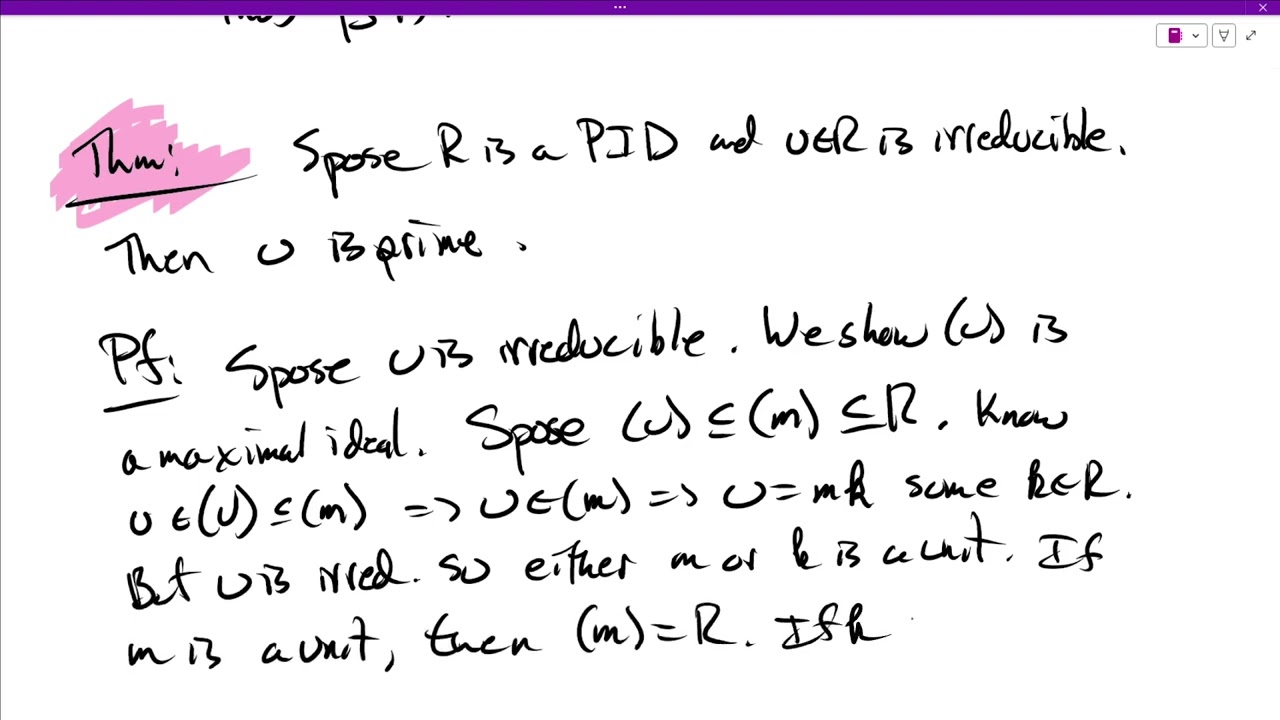 Thm: Spose R is a PID and υ∈R is irreducible.
Then υ is prime.
Pf: Spose υ is irreducible. We show (υ) is
a maximal ideal. Spose (υ) ⊆ (m) ⊆ R. Know
υ ∈ (υ) ⊆ (m) => υ ∈ (m) => υ = mk some k∈R.
But υ is irred. so either m or k is a unit. If
m is a unit, then (m) = R. If k